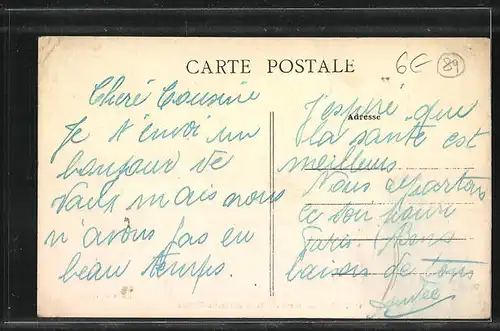 CARTE POSTALE
6€
89
Cheré Cousine
Je t'envoi un
bonjour de
Vals mais nous
n'avons pas eu
beau temps.
Adresse
J'espere que
la santé est
meilleurs
Nous repartons
ce soir pour
Paris. Bons
baisers de tous